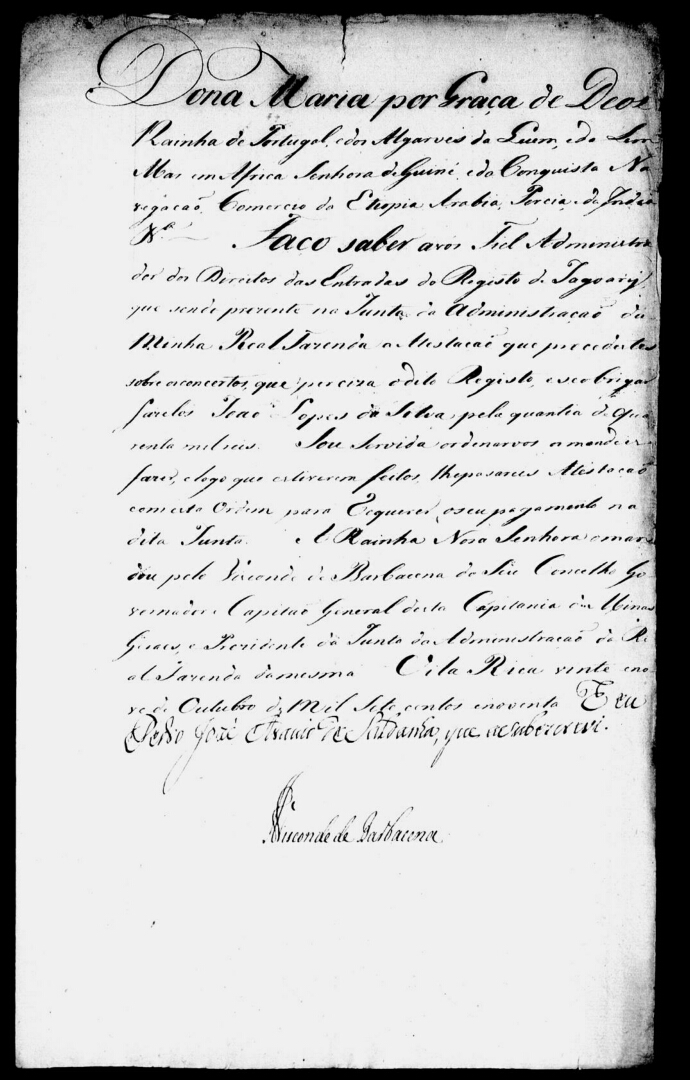 Dona Maria por Graça de Deos
Rainha de Portugal, e dos Algarves da quem, e da lem
Mar em Africa Senhora de Guiné, e da Conquista Na
vegação, Comercio da Etiopia Arabia, Percia, e da India
&.ª Faço saber a vós Fiel Administra
dor dos Direitos das Entradas do Registo de Jagoary
que sendo prezente na Junta da Administração da
Minha Real Fazenda a Atestação que procedestes
sobre os concertos, que perciza o dito Registo, e se obrigar
fazelos João Lopes da Silva, pela quantia de qua
renta mil reis. Sou Servida ordenarvos os mandeis
fazer, e logo que estiverem feitos, lhe passareis Atestação
com esta Ordem para Requerer o seu pagamento na
dita Junta. A Rainha Nosa Senhora o man
dou pelo Visconde de Barbacena do Seu Concelho Go
vernador e Capitão General desta Capitania de Minas
Geraes, e Prezidente da Junta da Administração da Re
al Fazenda da mesma Vila Rica vinte e no
ve de Outubro de Mil Sete centos e noventa E eu
Pedro José Araujo de Saldanha, que a sobscrevi.
Visconde de Barbacena